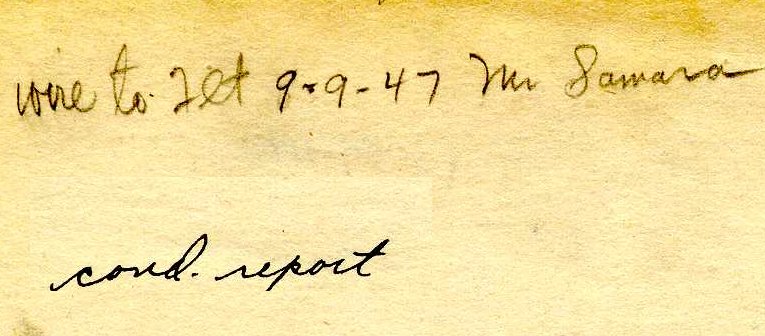 wire to Flt 9-9-47 Mr Samara
cond. report